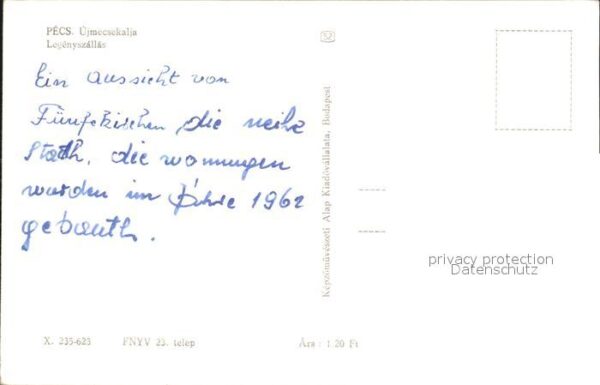 PÉCS. Újmecsekalja
Legényszállás
Ein aussicht von
Fünfekischen die neihe
Stath, die wonnungen
wurden im Jahre 1962
gebauth.
Képzőművészeti Alap Kiadóvállalata, Budapest
privacy protection
Datenschutz
X. 235-623 FNYV 23. telep Ára : 1.20 Ft